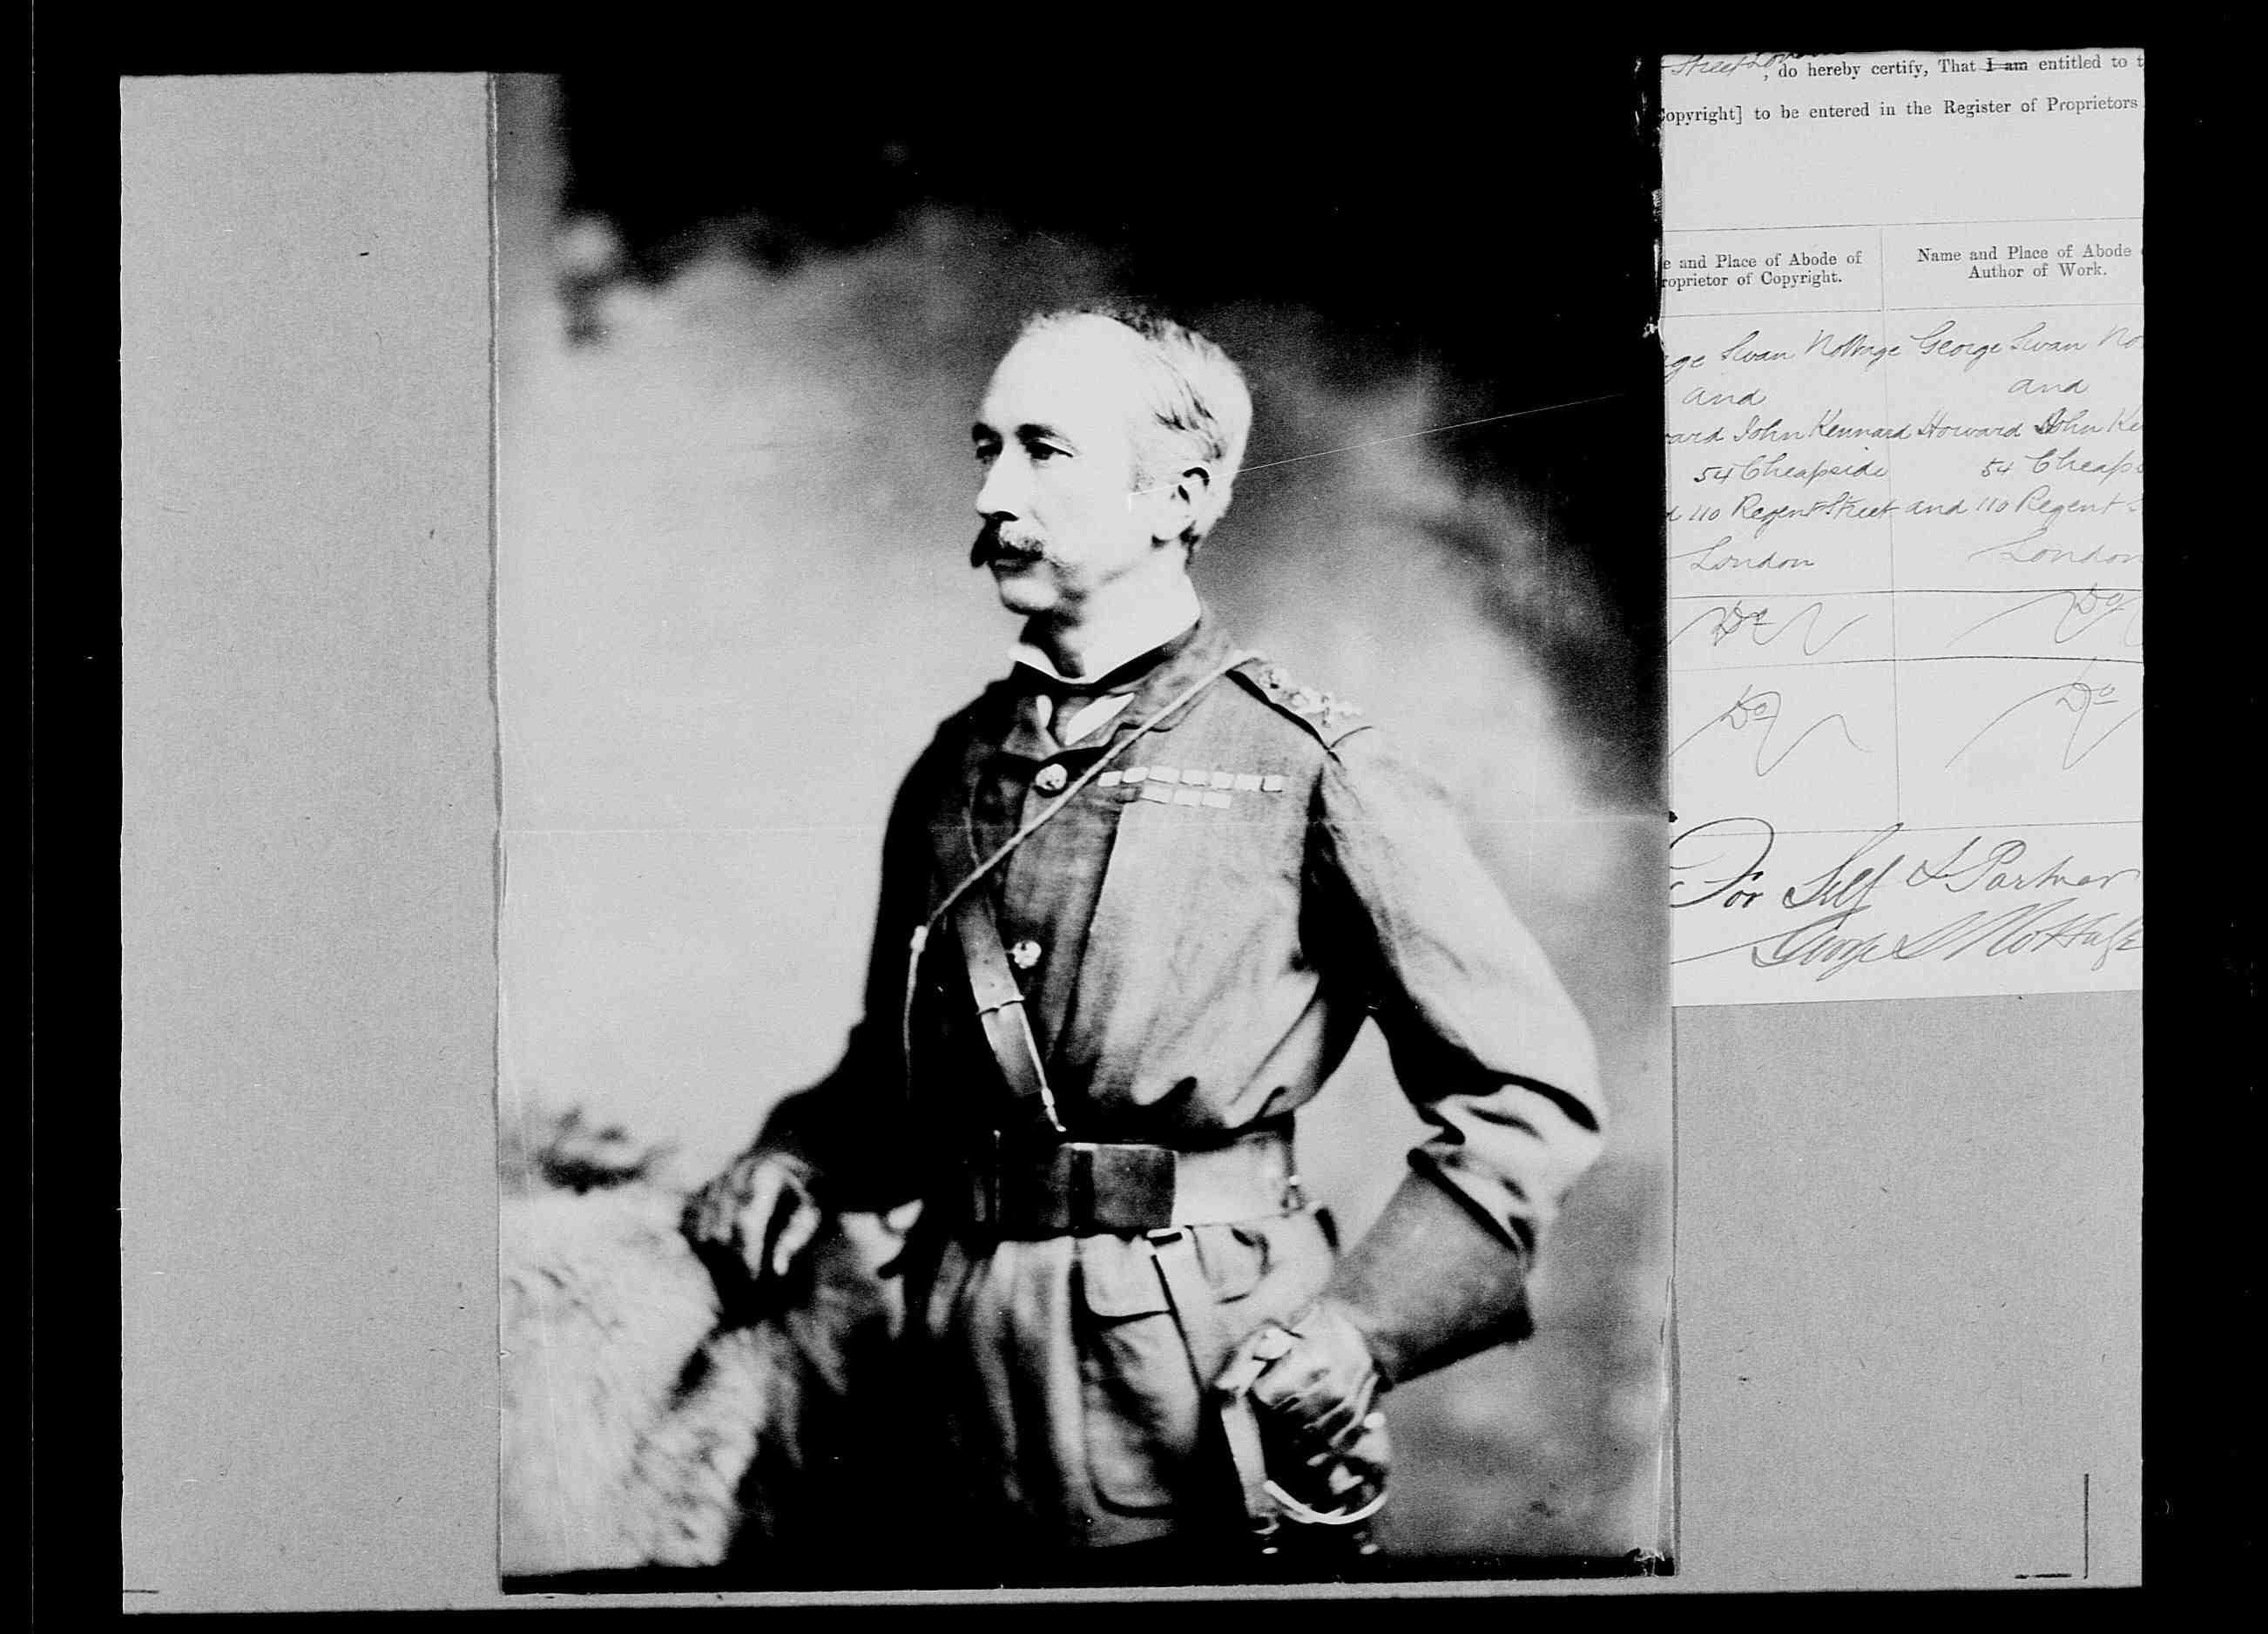 Street London
, do hereby certify, That I am entitled to t
opyright] to be entered in the Register of Proprietors
e and Place of Abode of
roprietor of Copyright.
Name and Place of Abode
Author of Work.
ge Swan Nottage
and
ard John Kennard
54 Cheapside
d 110 Regent Street
London
George Swan No
and
Howard John Ke
54 Cheaps
and 110 Regent S
London
Do
Do
Do
Do
For Self & Partner
George S Nottage